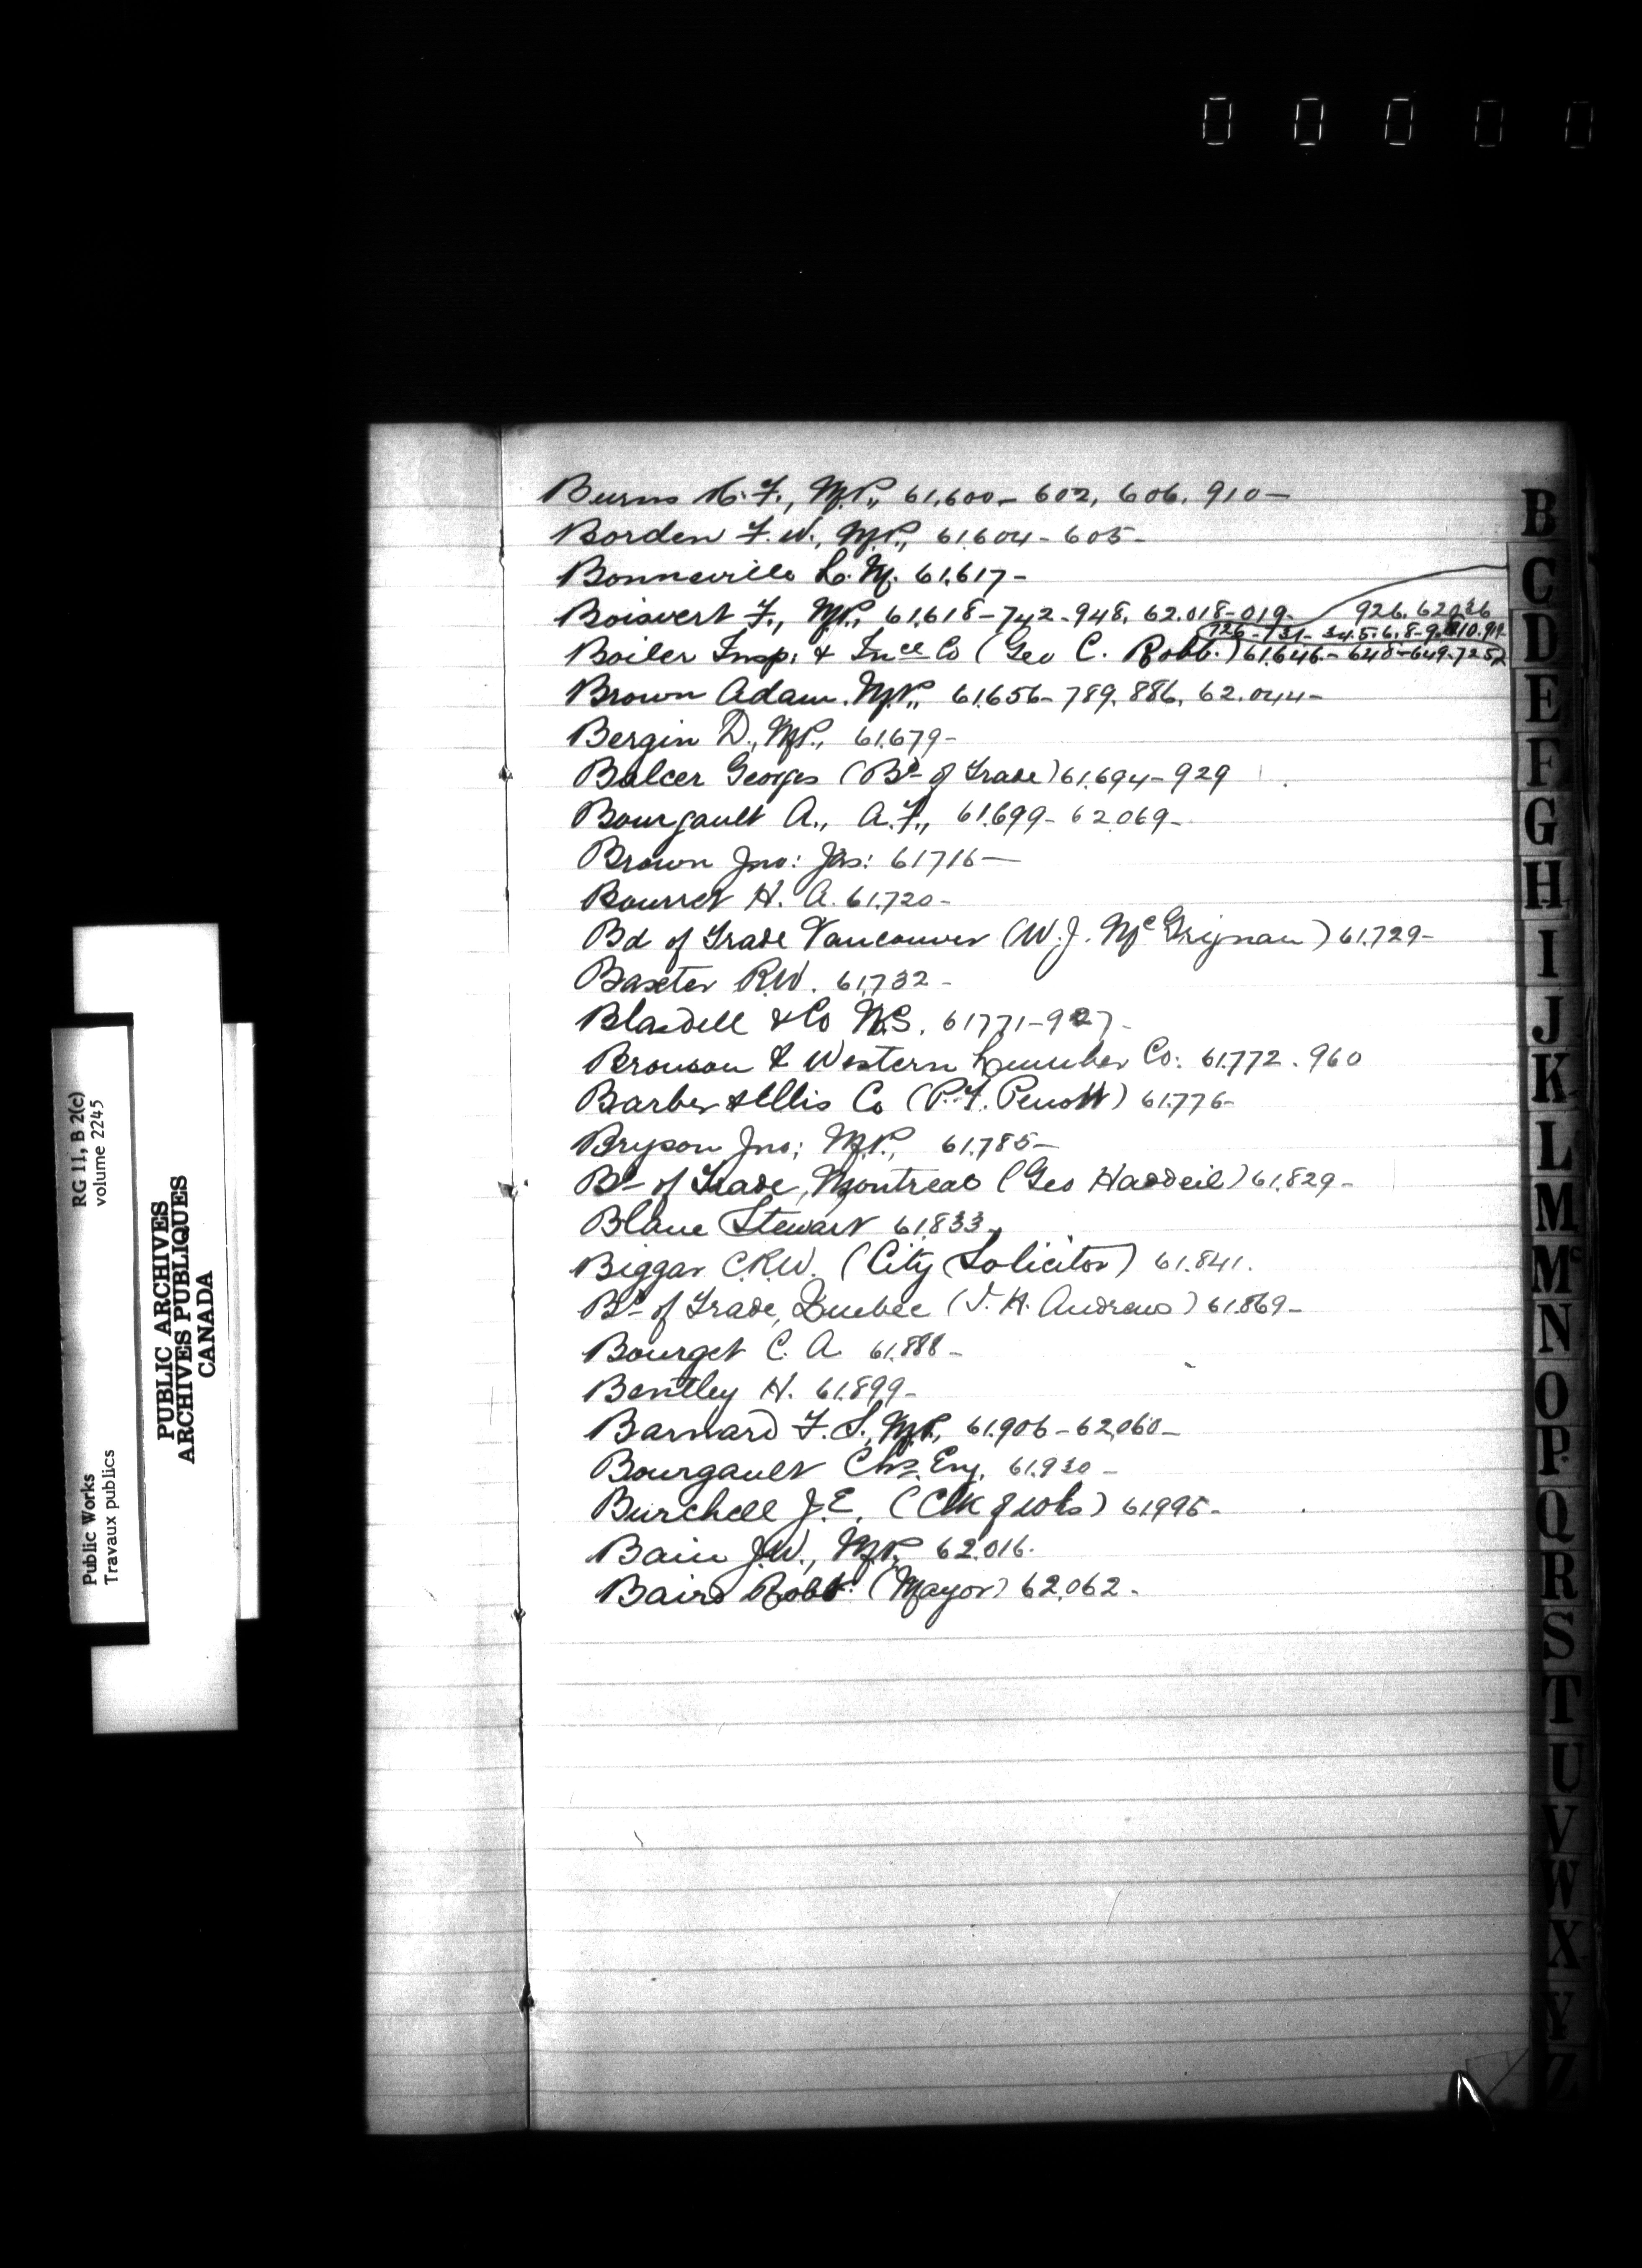 0 0 0 0 0
Burns K. F., M.P., 61,600 - 602, 606, 910 -
Borden F. W., M.P., 61.604 - 605 -
Bonneville L. M. 61,617 -
Boisvert F., M.P., 61,618 - 742 - 948, 62.018 - 019 -
926. 62036
726 - 731 - 34.5.6.8-9. 810.914
Boiler Insp. & Ince Co (Geo C. Robb.) 61,646 - 648 - 649 - 725
Brown Adam. M.P., 61.656 - 789. 886, 62.044 -
Bergin D., M.P., 61.679 -
Balcer Georges (Bd of Trade) 61.694 - 929
Bourgault A., A.F., 61.699 - 62.069 -
Brown Jno: Jas: 61716 -
Bourret H. A. 61.720 -
Bd of Trade Vancouver (W. J. Mc ) 61.729 -
Baxter R.W. 61,732 -
Blasdell & Co 61771 - 927 -
Bronson & Western Lumber Co: 61.772 . 960
Barber & Ellis Co (P. F. ) 61.776 -
Bryson Jno: M.P., 61.785 -
Bd of Trade, Montreal (Geo Haddeil) 61.829 -
Blane Stewart 61.833 -
Biggar C.R.W. (City Solicitor) 61.841.
Bd of Trade, Quebec (J. H. Andrews) 61.869 -
Bourget C. A 61.888 -
Bentley H. 61.899 -
Barnard F. S., M.P., 61.906 - 62,060 -
Bourgault Chs. Eng. 61.930 -
Burchell J. E. (Clk of Wks) 61995 -
Bain J.W., M.P., 62.016.
Baird Robt. (Mayor) 62,062 -
B
C
D
E
F
G
H
I
J
K
L
M
Mc
N
O
P.
Q
R
S
T
U
V
W
X
Y
Z
RG 11, B 2(c)
volume 2245
Public Works
Travaux publics
PUBLIC ARCHIVES
ARCHIVES PUBLIQUES
CANADA